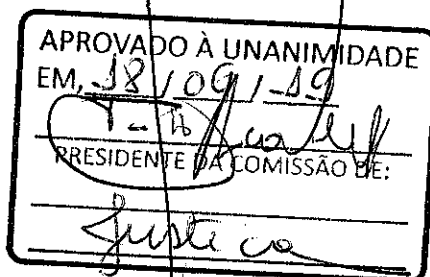 APROVADO À UNANIMIDADE
EM, 18/09/19
PRESIDENTE DA COMISSÃO DE:
Justiça